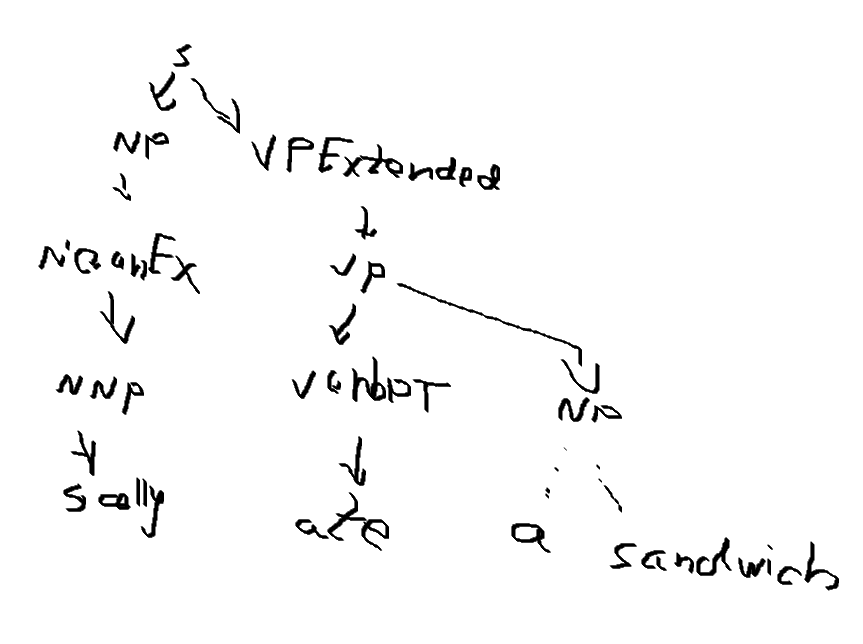 S
NP VPExtended
NounEx VP
NNP VerbPT NP
Sally ate a sandwich